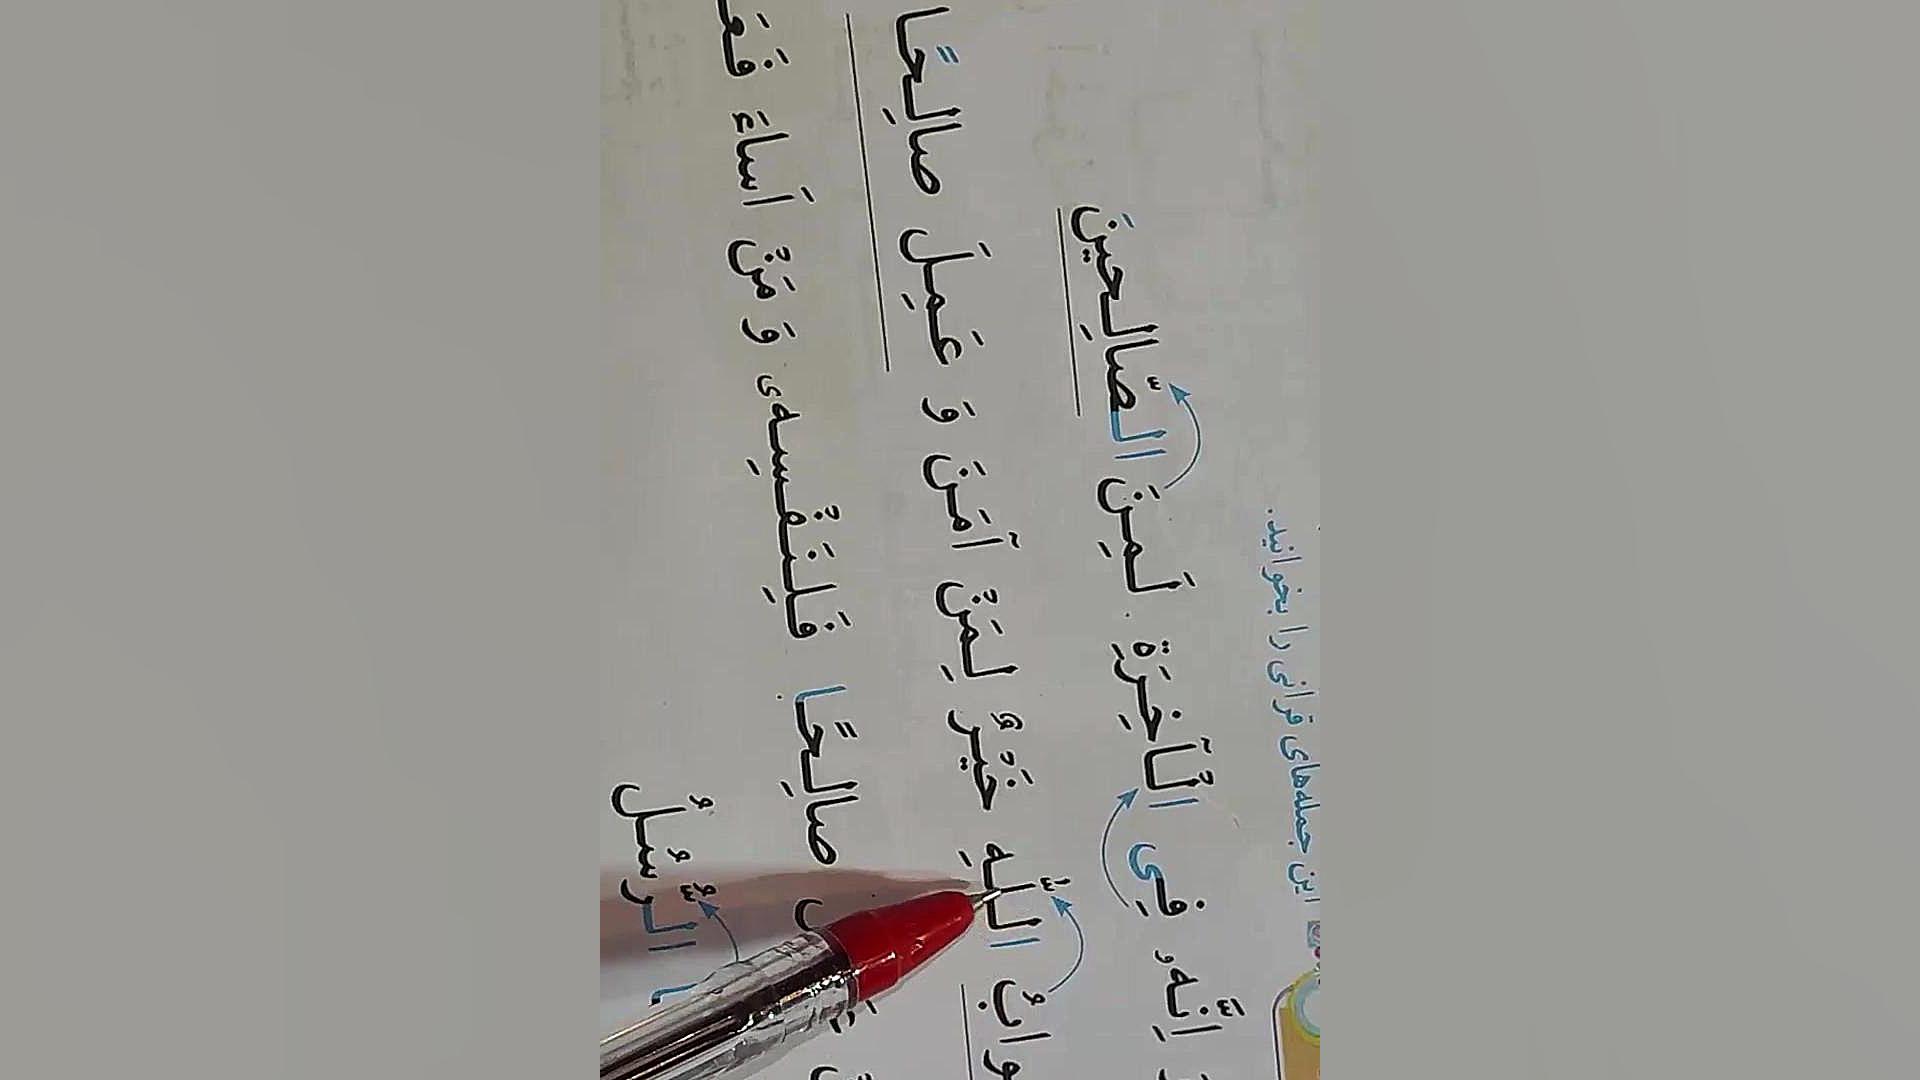 این جمله‌های قرآنی را بخوانید.
اِنَّهۥ فِی الْآخِرَةِ لَمِنَ الصّالِحینَ
اللّٰهِ خَیْرٌ لِمَنْ آمَنَ وَ عَمِلَ صالِحًا
صالِحًا فَلِنَفْسِهٖ وَ مَنْ اَساءَ
الرُّسُلُ